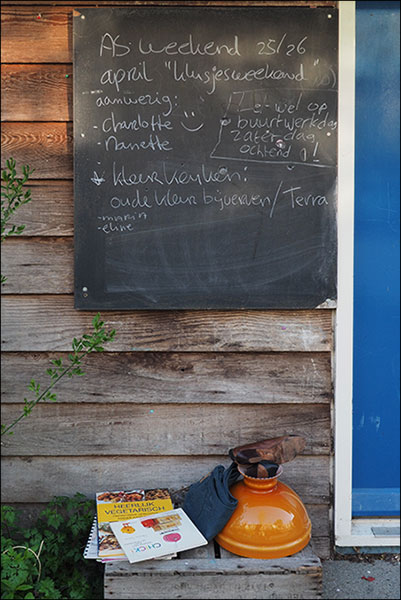 AS. weekend 25/26
april "klusjesweekend"
aanwezig:
- charlotte
- nanette
wel op
buurtwerkdag
zaterdag
ochtend !
kleur keuken:
oude kleur bijverven/Terra
- maria
- eline
HEERLIJK
VEGETARISCH